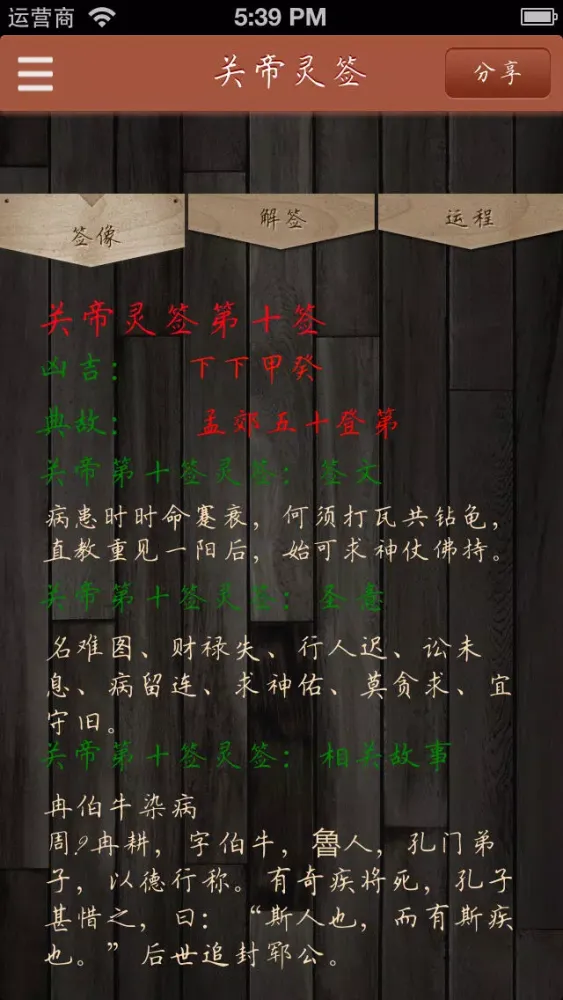 运营商 5:39 PM
关帝灵签 分享
签像 解签 运程
关帝灵签第十签
凶吉: 下下甲癸
典故: 孟郊五十登第
关帝第十签灵签: 签文
病患时时命蹇衰，何须打瓦共钻龟，
直教重见一阳后，始可求神仗佛持。
关帝第十签灵签: 圣意
名难图、财禄失、行人迟、讼未
息、病留连、求神佑、莫贪求、宜
守旧。
关帝第十签灵签: 相关故事
冉伯牛染病
周?冉耕，字伯牛，魯人，孔门弟
子，以德行称。有奇疾将死，孔子
甚惜之，曰：“斯人也，而有斯疾
也。”后世追封郓公。